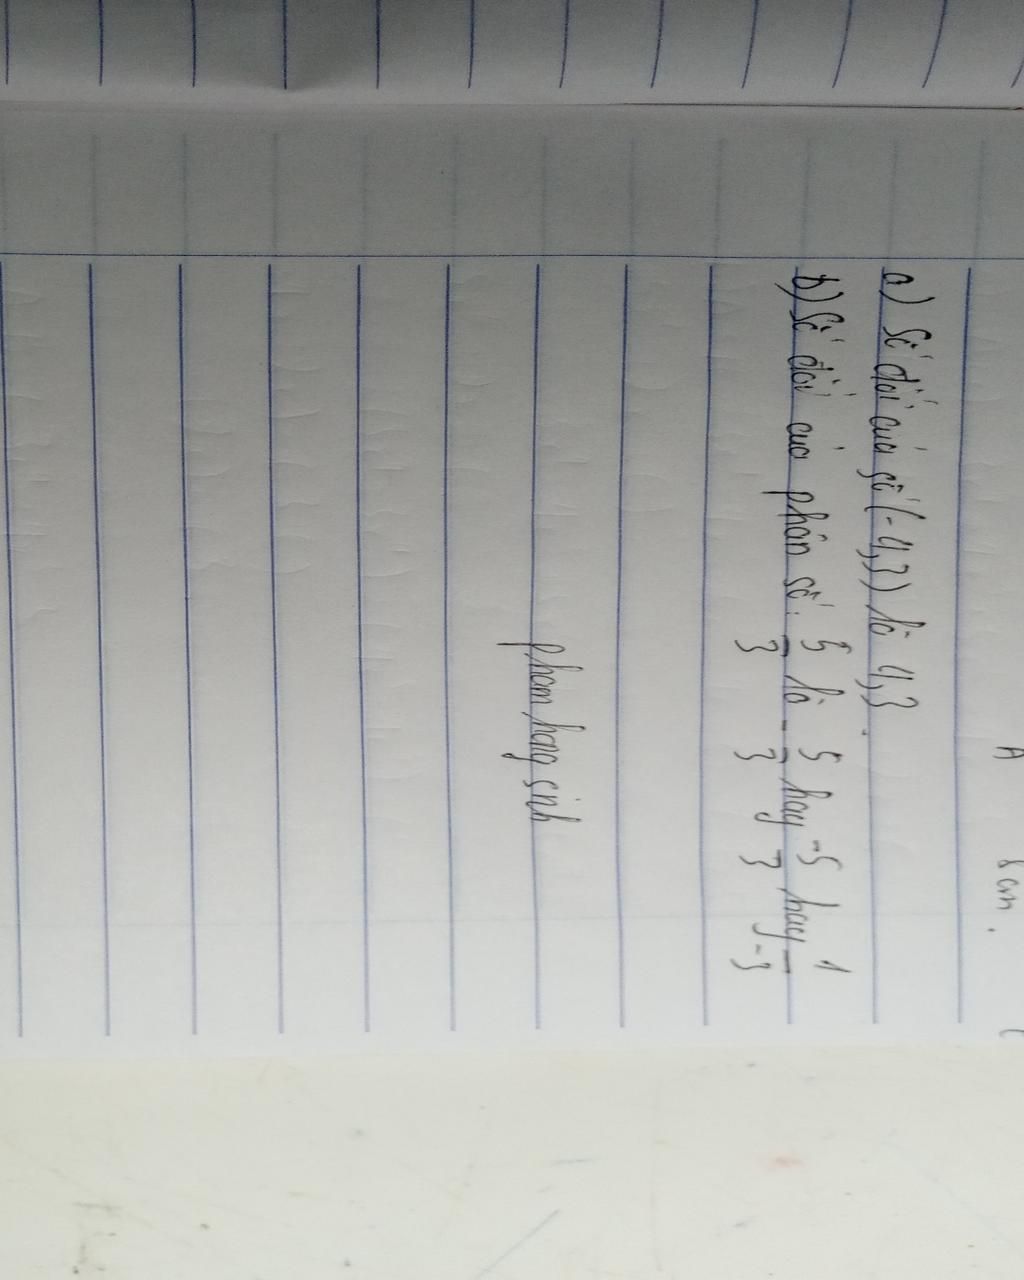 A 8cm. C
a) Số đối của số (-4,3) là 4,3.
b) Số đối của phân số: 5/3 là -5/3 hay -5/3 hay 1/-3
phamhangsinh